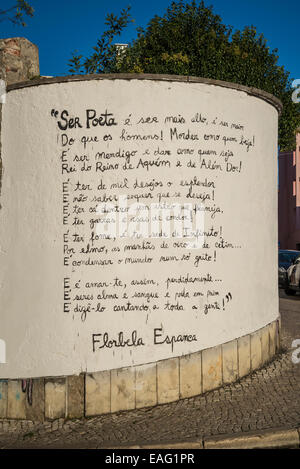 "Ser Poeta é ser mais alto, é ser maior
Do que os homens! Morder como quem beija!
É ser mendigo e dar como quem seja
Rei do Reino de Aquém e de Além Dor!
É ter de mil desejos o esplendor
E não saber sequer que se deseja!
É ter cá dentro um astro que flameja,
É ter garras e asas de condor!
É ter fome, é ter sede de Infinito!
Por elmo, as manhãs de oiro e de cetim...
É condensar o mundo num só grito!
E é amar-te, assim, perdidamente...
É seres alma e sangue e vida em mim
E dizê-lo cantando a toda a gente!"
Florbela Espanca
alamy
Image ID: EAG1PR
www.alamy.com